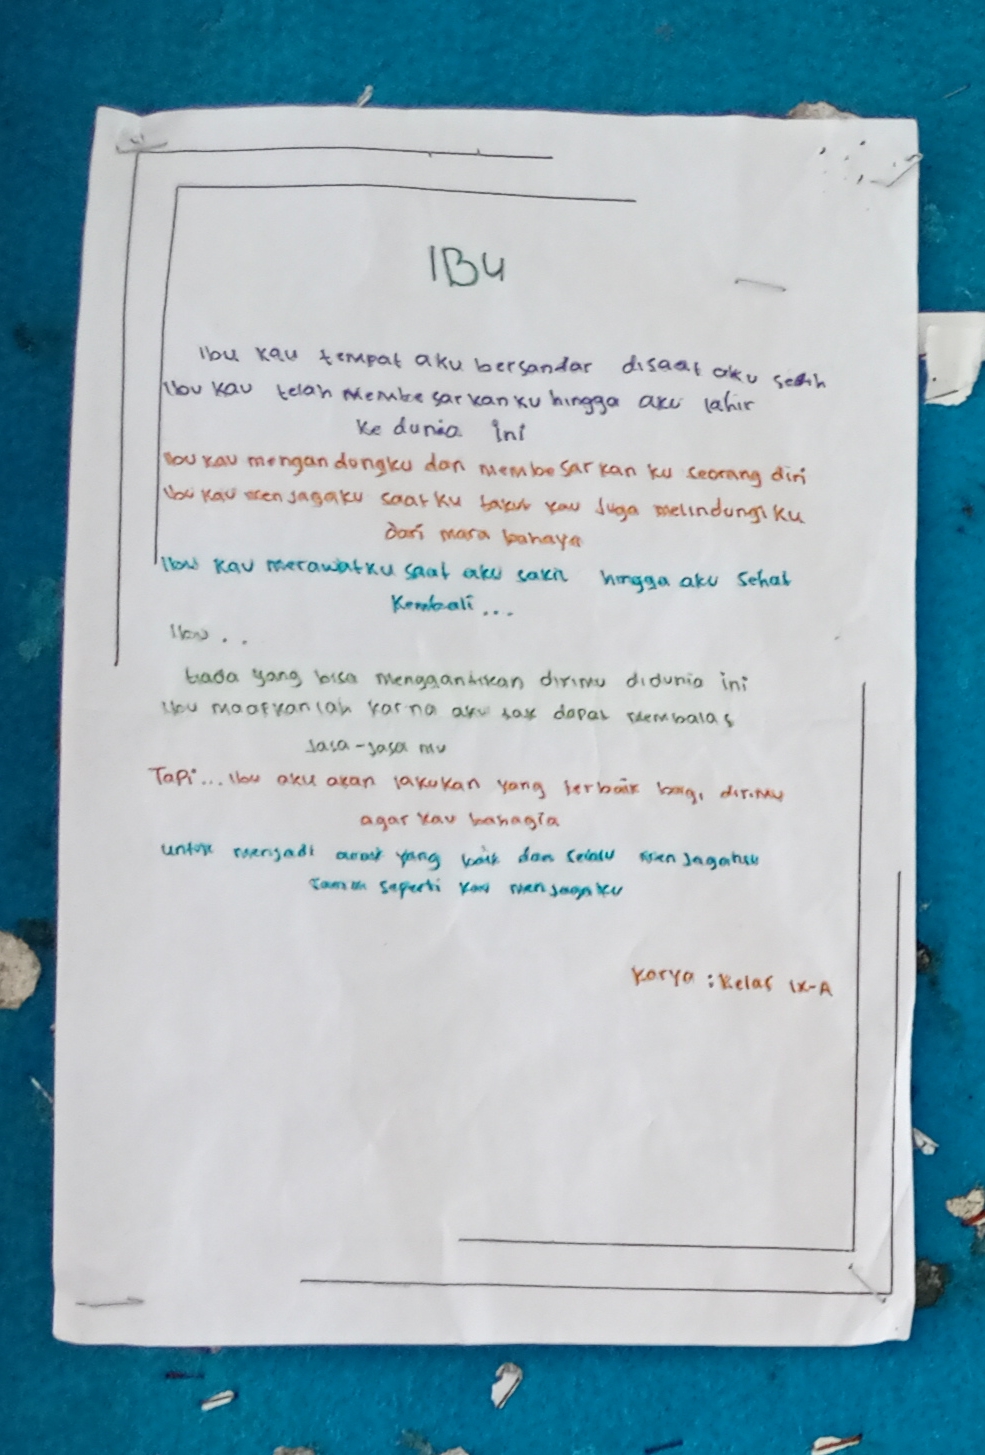 IBU
Ibu kau tempat aku bersandar disaat aku sedih
Ibu kau telah membesarkanku hingga aku lahir
ke dunia ini
Ibu kau mengandongku dan membesarkan ku seorang diri
Ibu kau menjagaku saat ku takut kau juga melindungi ku
dari mara bahaya
Ibu kau merawatku saat aku sakit hingga aku sehat
kembali...
Ibu..
tiada yang bisa menggantikan dirimu didunia ini
Ibu maafkanlah karna aku tak dapat membalas
Jasa-Jasa mu
Tapi... Ibu aku akan lakukan yang terbaik bagi dirimu
agar kau bahagia
untuk menjadi anak yang baik dan selalu menjagamu
seperti kau menjagaku
Karya : Kelas IX-A